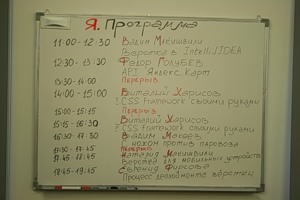 Я. Программа
11:00 - 12:30 Вадим Макишвили
Верстка в IntelliJ IDEA
12:30 - 13:30 Федор Голубев
API Яндекс.Карт
13:30 - 14:00 Перерыв
14:00 - 15:00 Виталий Харисов
CSS Framework своими руками
15:00 - 15:15 Перерыв
15:15 - 16:30 Виталий Харисов
CSS Framework своими руками
16:30 - 17:30 Вадим
С ножом против паровоза
17:30 - 17:45 Перерыв
17:45 - 18:45 Макишвили
Верстка для мобильных устройств
18:45 - 19:45 Евгения Фирсова
Процесс деплоймента вёрстки